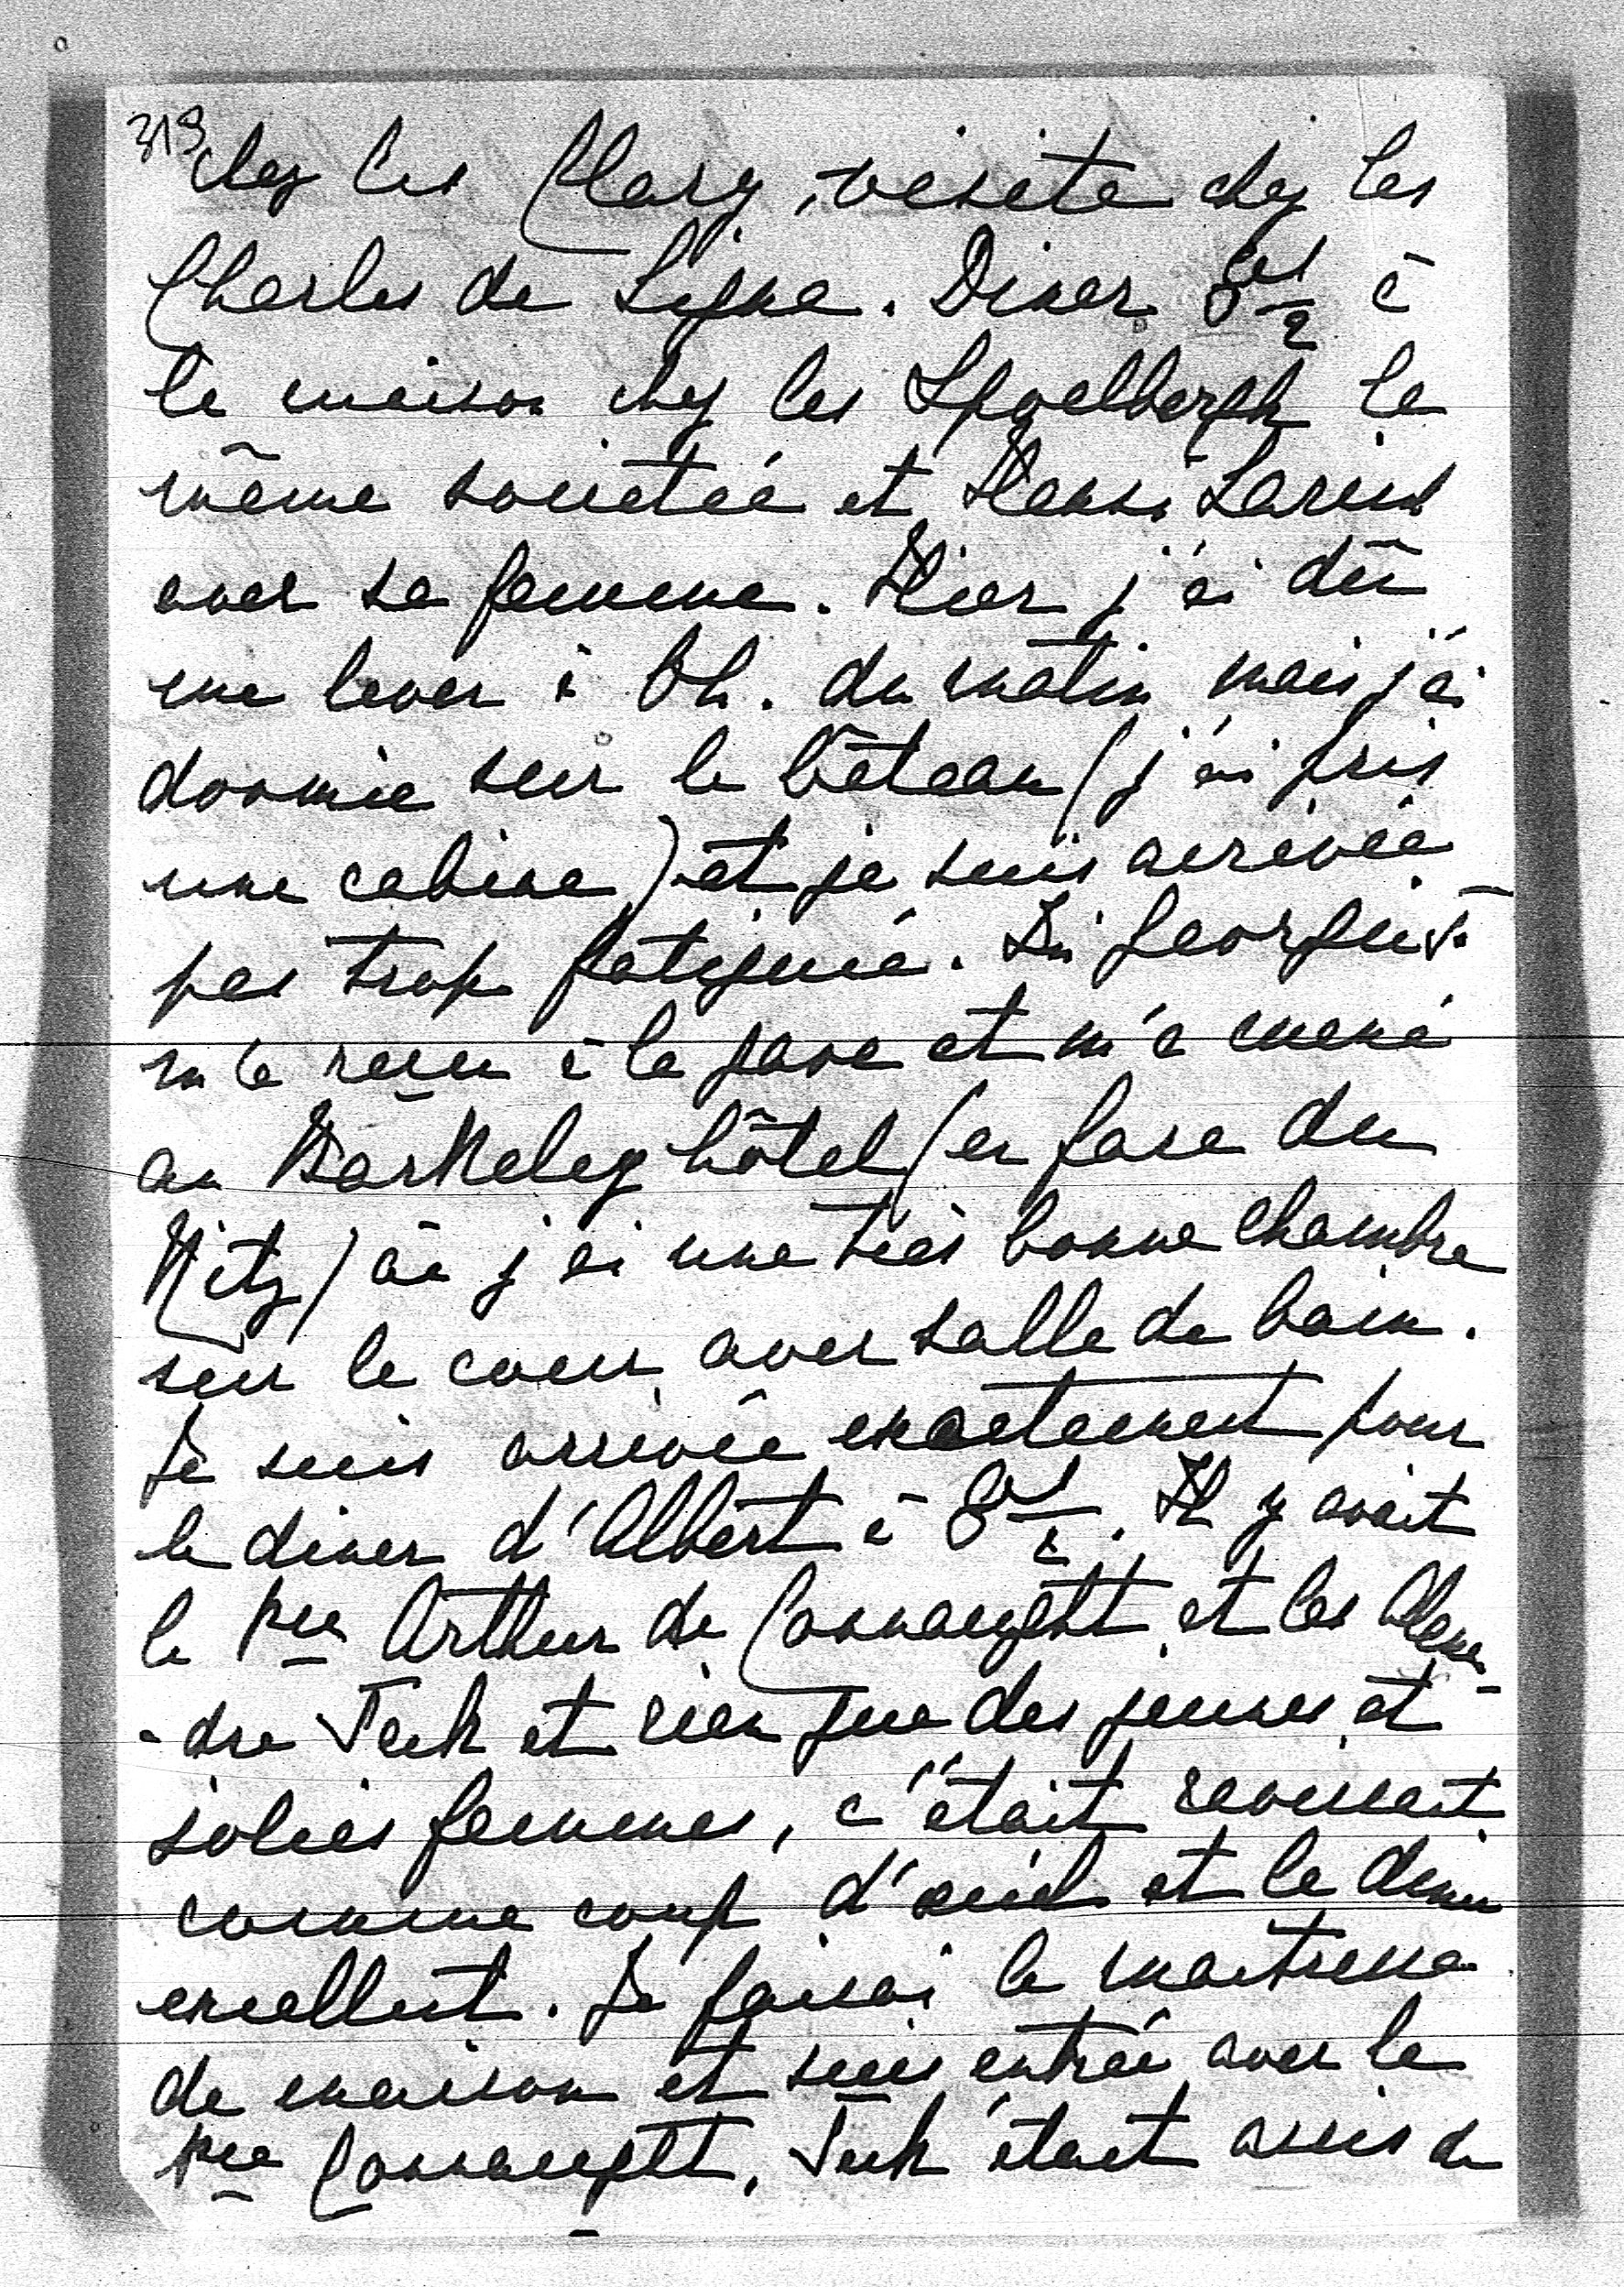 319 chez les Clary, visite chez les
Charles de Ligne. Diner 8 1/2 à
la maison chez les Spoelbergh la
même societée et Hansi Larisch
avec sa femme. Hier j'ai dû
me lever à 6h. du matin mais j'ai
dormie sur le bâteau (j'ai pris
une cabine) et je suis arrivée
pas trop fatiguée.
m'a reçu à la gare et m'a mené
au Berkeley hôtel (en face du
Ritz) où j'ai une très bonne chambre
sur la cour avec salle de bain.
Je suis arrivée exactement pour
le diner d'Albert à 8 1/2. Il y avait
le Pce Arthur de Connaught et les Alexan-
-dre Teck et rien que des jeunes et
jolies femmes, c'était ravissant
comme coup d'œil et le diner
excellent. Je faisai la maitresse
de maison et suis entrée avec le
Pce Connaught, Teck était assis de